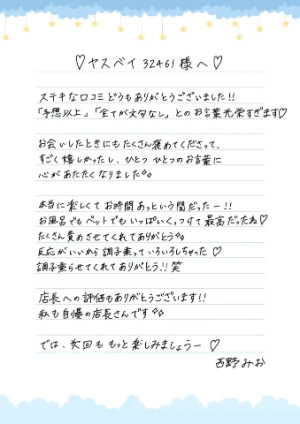 ♡ヤスベイ32461様へ♡
ステキな口コミどうもありがとうございました!!
「予想以上」「全てが文句なし」とのお言葉光栄すぎます♡
お会いしたときにもたくさん褒めてくださって、
すごく嬉しかったし、ひとつひとつのお言葉に
心があたたくなりました
本当に楽しくてお時間あっという間だったー!!
お風呂でもベットでもいっぱいくっつけて最高だったね♡
たくさん責めさせてくれてありがとう
反応がいいから調子乗っていろいろしちゃった♡
調子乗らせてくれてありがとう!! 笑
店長への評価もありがとうございます!!
私も自慢の店長さんです
では、次回ももっと楽しみましょうー♡
西野みお